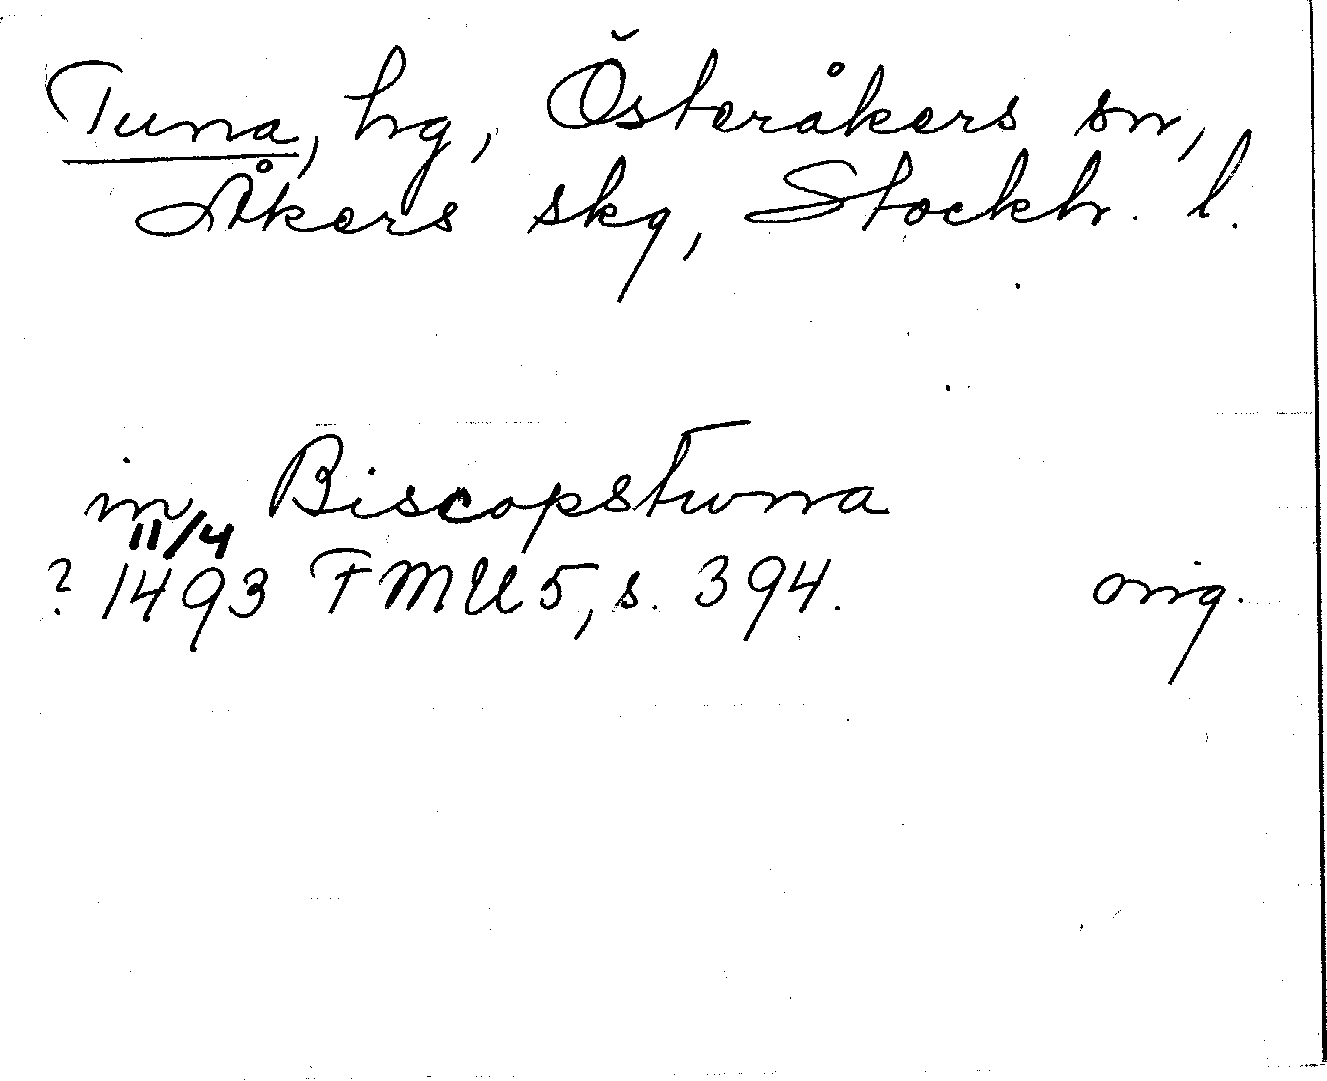 Tuna, hg, Österåkers sn,
Åkers skg, Stockh. l.
in Biscopstuna
11/4
? 1493 FMU 5, s. 394. orig.